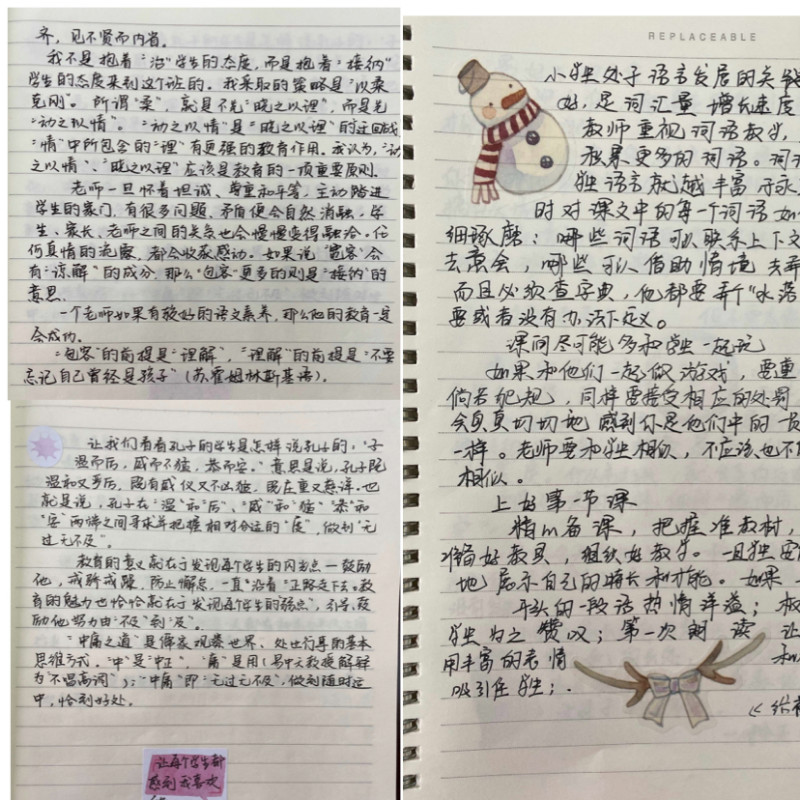 齐，见不贤而内省。
我不是抱着“治”学生的态度，而是抱着“接纳”
学生的态度来到这个班的。我采取的策略是“以柔
克刚”。所谓“柔”，就是不先“晓之以理”，而是先
“动之以情”。“动之以情”是“晓之以理”的迂回战
“情”中所包含的“理”有更强的教育作用。我认为，“动
之以情”、“晓之以理”应该是教育的一项重要原则。
老师一旦怀着坦诚、尊重和平等，主动踏进
学生的家门，有很多问题、矛盾便会自然消融，学
生、家长、老师之间的关系也会慢慢变得融洽。任
何真情的流露，都会收获感动。如果说“宽容”会
有“谅解”的成分，那么“包容”更多的则是“接纳”的
意思。
一个老师如果有较好的语文素养，那么他的教育一定
会成功。
“包容”的前提是“理解”，“理解”的前提是“不要
忘记自己曾经是孩子”（苏霍姆林斯基语）。
让我们看看孔子的学生是怎样说孔子的：“子
温而厉，威而不猛，恭而安。”意思是说，孔子既
温和又严厉，既有威仪又不凶猛，既庄重又慈详。也
就是说，孔子在“温”和“厉”、“威”和“猛”“恭”和
“安”两端之间寻求并把握相对合适的“度”，做到“无
过无不及”。
教育的意义就在于发现每个学生的闪光点—鼓励
他，戒骄戒躁，防止懈怠，一直“沿着”正路走下去。教
育的魅力也恰恰就在于发现每个学生的弱点”，引导、鼓
励他努力由“不及”到“及”。
“中庸之道”是儒家观察世界、处世行事的基本
思维方式，“中”是“中正”，“庸”是用（易中天教授解释
为“不唱高调”）；“中庸”即“无过无不及”，做到随时适
中，恰到好处。
让每个学生都
感到我喜欢
REPLACEABLE
小学处于语言发展的关键
好，是词汇量增长速度
教师重视词语教学，
积累更多的词语。词语
学语言就越丰富
时对课文中的每一个词语如
细琢磨：哪些词语可以联系上下文
去意会，哪些可以借助情境去弄
而且必须查字典，他都要弄个“水落
要或者没有办法下定义。
课间尽可能多和学生一起玩
如果和他们一起做游戏，要遵
倘若犯规，同样要接受相应的处罚
会真真切切地感到你是他们中的一员
一样。老师要和学生相似，不应该也不
相似。
上好第一节课
精心备课，把握准教材，
准备好教具，组织好教学。
地展示自己的特长和才能。如果一
开头的一段话热情洋溢；板
学生为之赞叹；第一次朗读 让
用丰富的表情 和
吸引住学生；